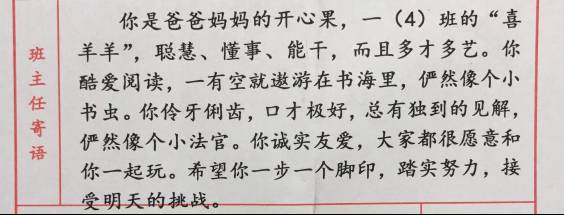 班主任寄语
你是爸爸妈妈的开心果，一（4）班的“喜
羊羊”，聪慧、懂事、能干，而且多才多艺。你
酷爱阅读，一有空就遨游在书海里，俨然像个小
书虫。你伶牙俐齿，口才极好，总有独到的见解，
俨然像个小法官。你诚实友爱，大家都很愿意和
你一起玩。希望你一步一个脚印，踏实努力，接
受明天的挑战。